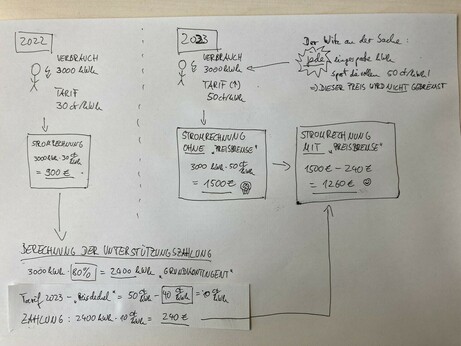 2022
VERBRAUCH
3000 kWh
TARIF
30 ct/kWh
STROMRECHNUNG
3000 kWh · 30 ct/kWh
= 900 €
2023
VERBRAUCH
3000 kWh
TARIF (↑)
50 ct/kWh
STROMRECHNUNG
OHNE „PREISBREMSE"
3000 kWh · 50 ct/kWh
= 1500 €
Der Witz an der Sache:
jede eingesparte kWh
spart die vollen 50 ct/kWh!
⇒ DIESER PREIS WIRD NICHT GEBREMST
STROMRECHNUNG
MIT „PREISBREMSE"
1500 € − 240 €
= 1260 €
BERECHNUNG DER UNTERSTÜTZUNGSZAHLUNG
3000 kWh · 80% = 2400 kWh „GRUNDKONTINGENT"
Tarif 2023 − „Preisdeckel" = 50 ct/kWh − 40 ct/kWh = 10 ct/kWh
ZAHLUNG: 2400 kWh · 10 ct/kWh = 240 €